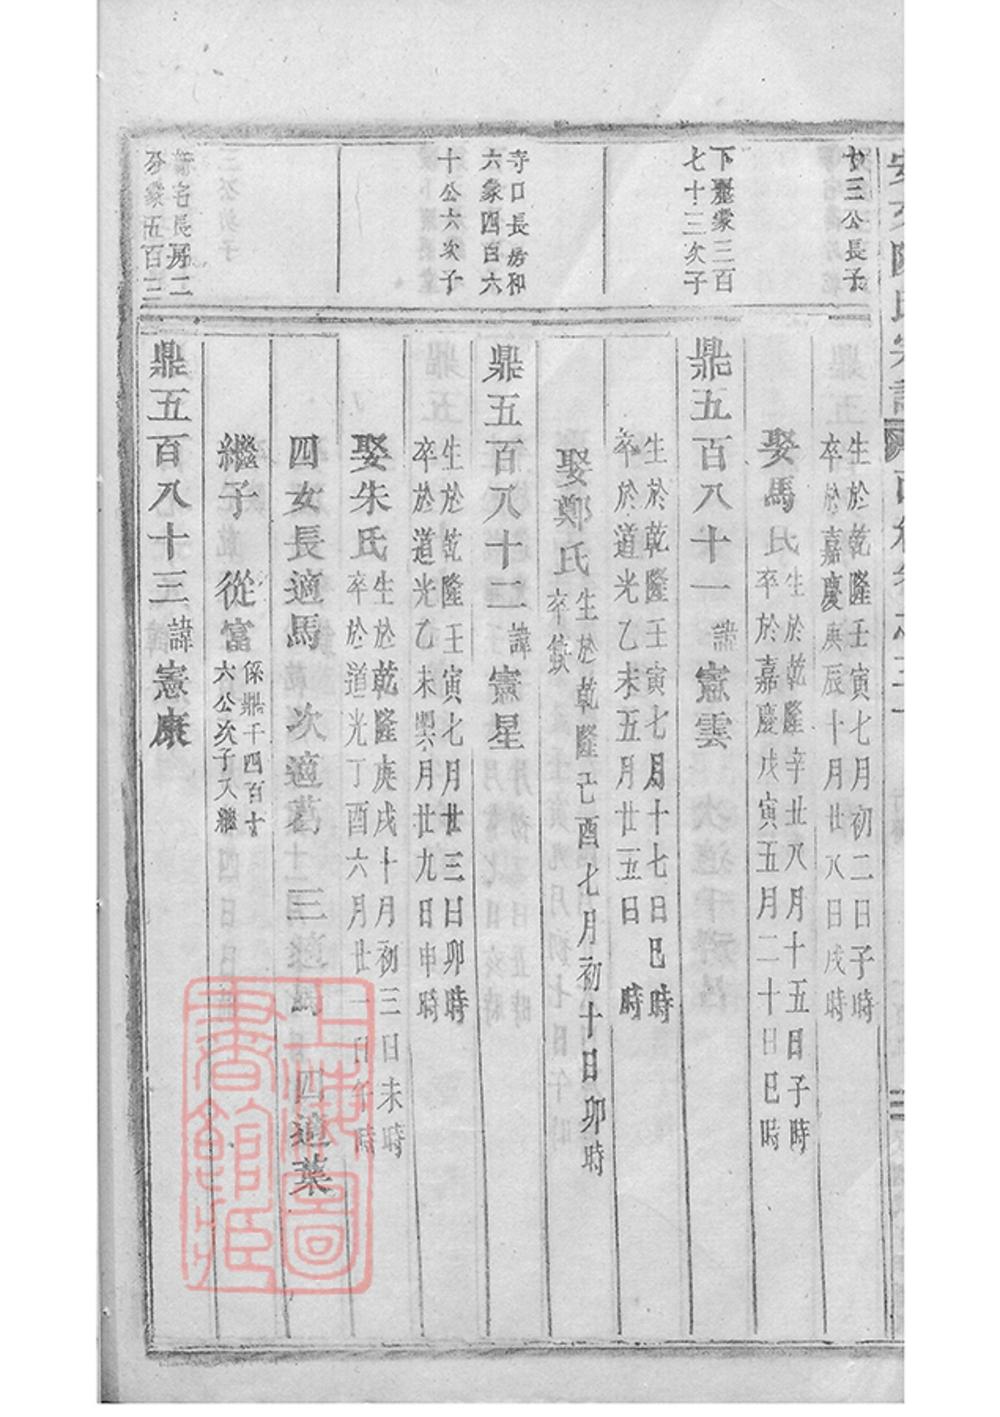 十三公長子
生於乾隆壬寅七月初二日子時
卒於嘉慶庚辰十月廿八日戌時
娶馬氏
生於乾隆辛丑八月十五日子時
卒於嘉慶戊寅五月二十日巳時
下塟象三百
七十三次子
鼎五百八十一
諱
憲雲
生於乾隆壬寅七月十七日巳時
卒於道光乙未五月廿五日 時
娶鄭氏
生於乾隆己酉七月初十日卯時
卒缺
寺口長房和
六象四百六
十公六次子
鼎五百八十二
諱
憲星
生於乾隆壬寅七月廿三日卯時
卒於道光乙未閏月廿九日申時
娶朱氏
生於乾隆庚戌十月初三日未時
卒於道光丁酉六月廿一日午時
四女長適馬 次適葛 三適馬 四適葉
繼子 從富
係鼎千四百十
六公次子入繼
新宅長房二
分象五百三
鼎五百八十三
諱
憲康
上海圖
書館藏